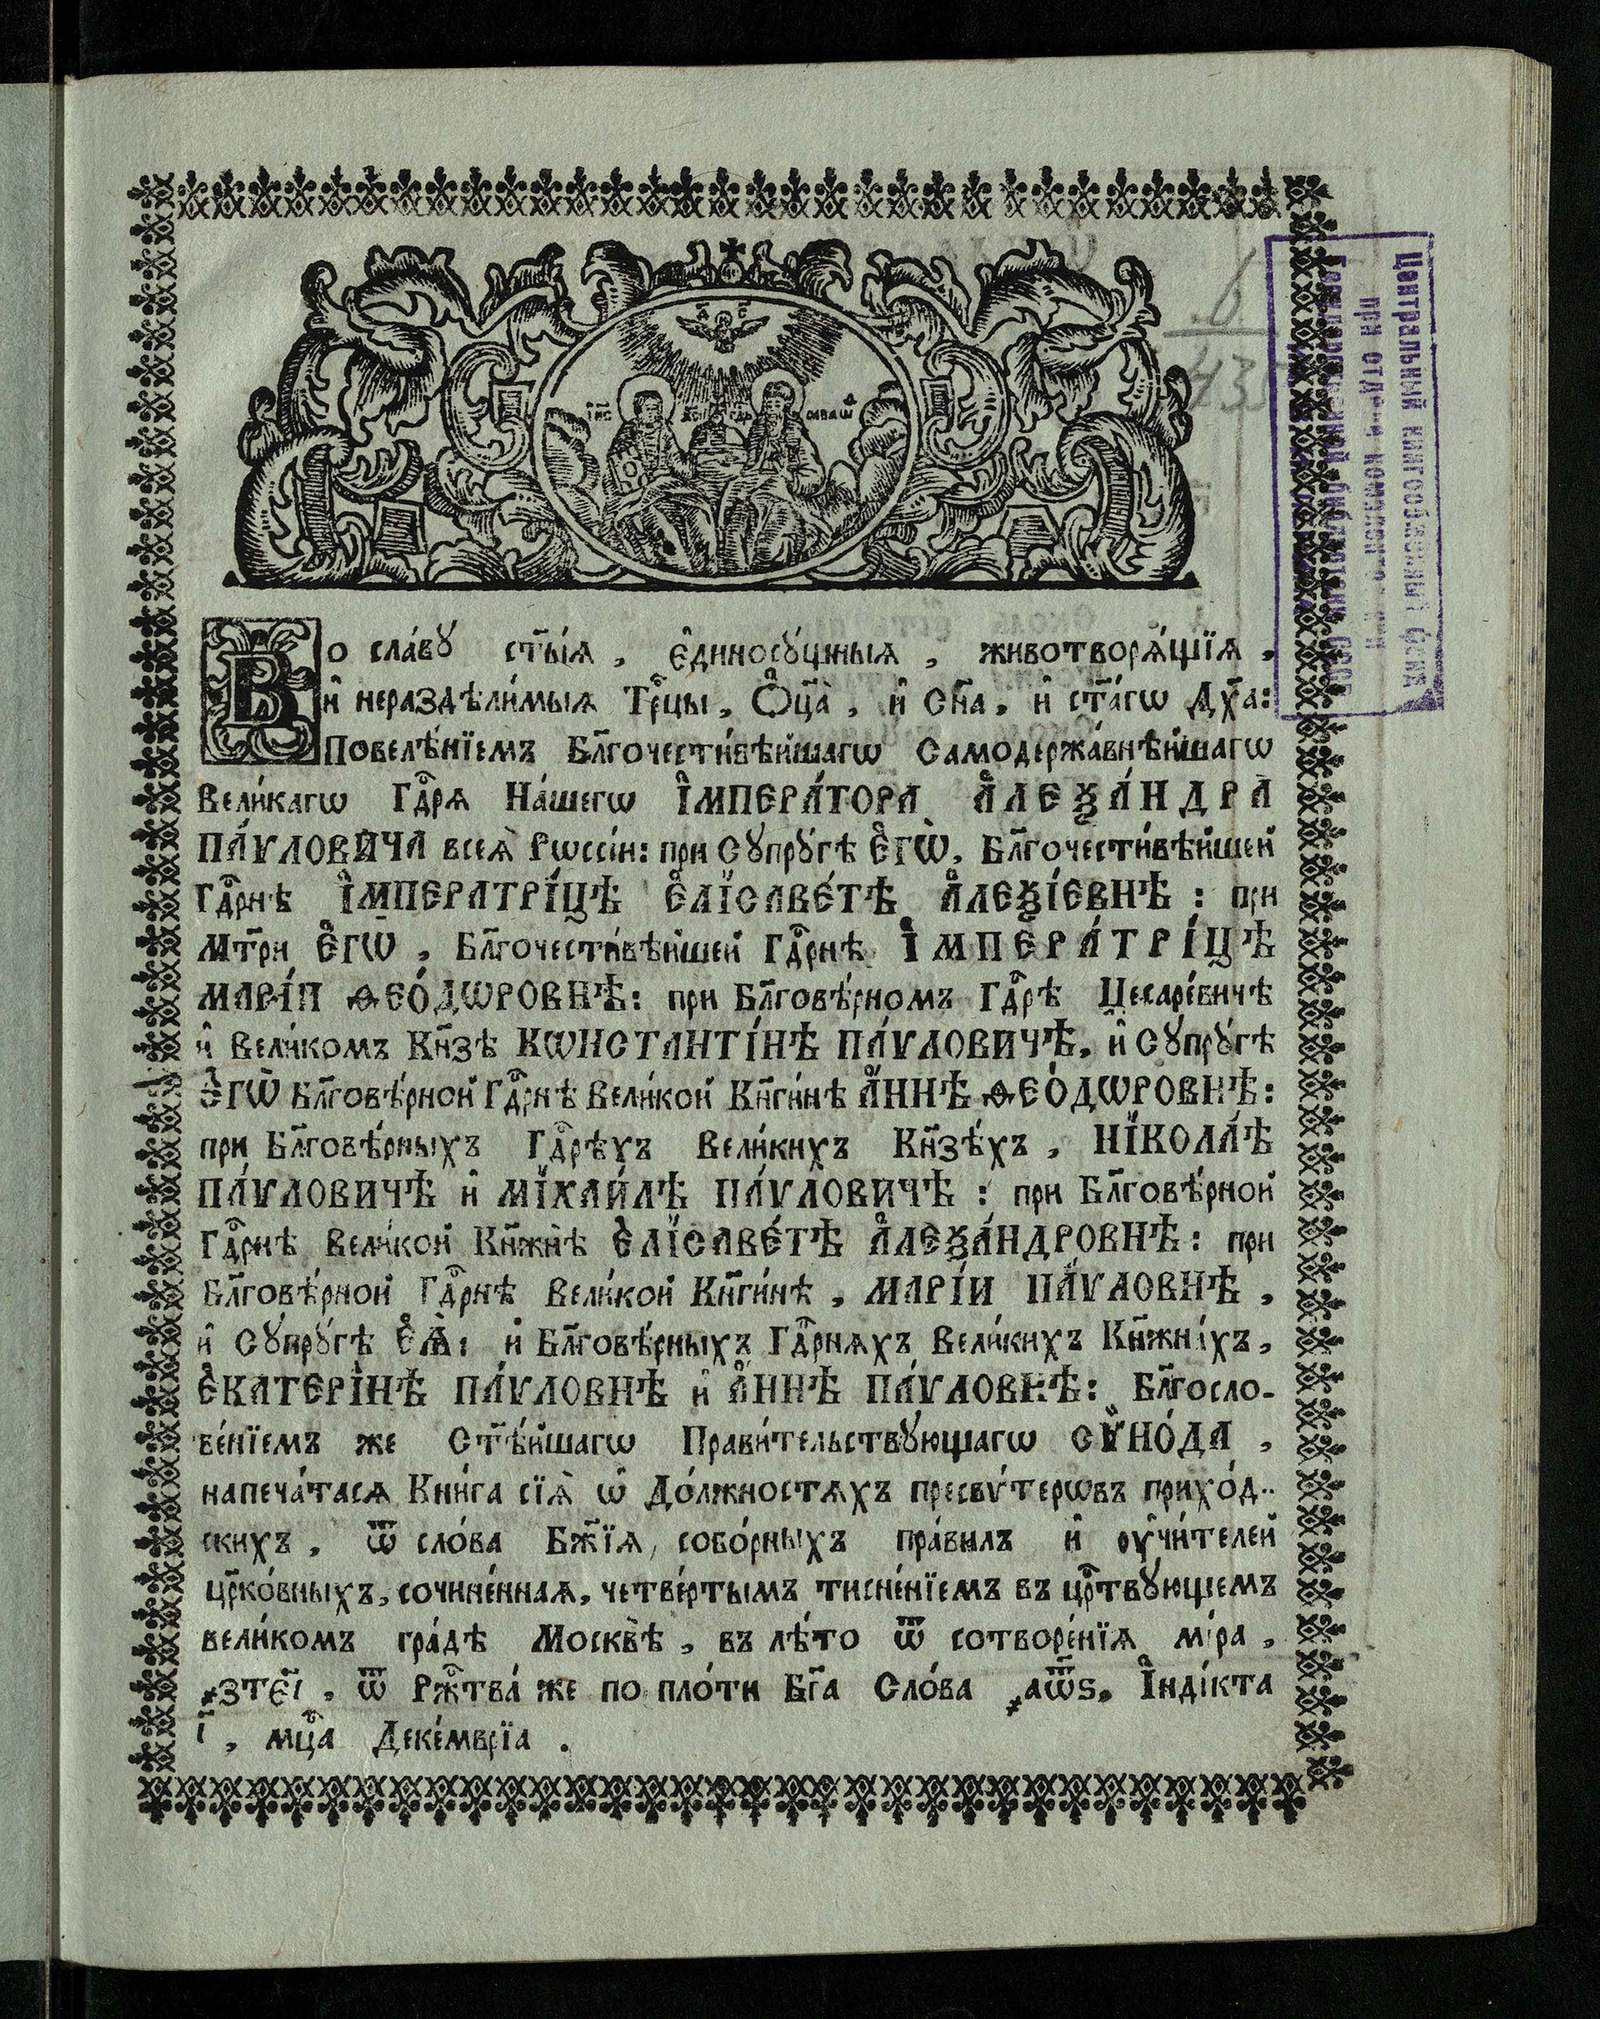 Во сла́вꙋ ст҃ы́ѧ , є҆диносꙋ́щныѧ , животворѧ́щїѧ ,
и҆ нераздѣли́мыѧ Трⷪ҇цы , Ѻ҆ц҃а̀ , и҆ Сн҃а , и҆ ст҃а́гѡ Дх҃а :
Повелѣ́нїемъ Бл҃гочести́вѣйшагѡ Самодержа́внѣйшагѡ
Вели́кагѡ Гдⷭ҇рѧ На́шегѡ І҆МПЕРА́ТОРА А҆ЛЕѮА́НДРА
ПА́ѴЛОВИЧА всеѧ̀ Рѡссі́и : при Сꙋпрꙋ́гѣ Є҆ГѠ̀ , Бл҃гочести́вѣйшей
Гдⷭ҇рнѣ І҆МПЕРАТРІ́ЦѢ Є҆ЛІСАВЕ́ТѢ А҆ЛЕѮІ́ЕВНѢ : при
Мт҃ри Є҆ГѠ̀ , Бл҃гочести́вѣйшей Гдⷭ҇рнѣ І҆МПЕРА́ТРІ́ЦѢ
МАРІ́И ѲЕО́ДѠРОВНѢ : при Бл҃говѣ́рномъ Гдⷭ҇рѣ Цесаре́вичѣ
и҆ Вели́комъ Кн҃зѣ КѠНСТАНТІ́НѢ ПА́ѴЛОВИЧѢ , и҆ Сꙋпрꙋ́гѣ
Є҆ГѠ̀ Бл҃говѣ́рной Гдⷭ҇рнѣ Вели́кой Кн҃ги́нѣ А҆́ННѢ ѲЕО́ДѠРОВНѢ :
при Бл҃говѣ́рныхъ Гдⷭ҇рѣхъ Вели́кихъ Кн҃зѣ́хъ , НІКОЛА́Ѣ
ПА́ѴЛОВИЧѢ и҆ МІХАИ́ЛѢ ПА́ѴЛОВИЧѢ : при Бл҃говѣ́рной
Гдⷭ҇рнѣ Вели́кой Кн҃жнѣ̀ Є҆ЛІСАВЕ́ТѢ А҆ЛЕѮА́НДРОВНѢ : при
Бл҃говѣ́рной Гдⷭ҇рнѣ Вели́кой Кн҃ги́нѣ , МАРІ́И ПА́ѴЛОВНѢ ,
и҆ Сꙋпрꙋ́гѣ Є҆Ѧ̀ : и҆ Бл҃говѣ́рныхъ Гдⷭ҇рнѧхъ Вели́кихъ Кн҃жна́хъ ,
Є҆КАТЕРІ́НѢ ПА́ѴЛОВНѢ и҆ А҆́ННѢ ПА́ѴЛОВНѢ : Бл҃госло-
ве́нїемъ же Ст҃ѣ́йшагѡ Прави́тельствꙋющагѡ СѴНО́ДА ,
напеча́тасѧ Кни́га сїѧ̀ ѡ҆ До́лжностѧхъ пресвѵ́терѡвъ прихо́д-
скихъ , ѿ сло́ва Бж҃їѧ , собо́рныхъ пра́вилъ и҆ ᲂу҆чи́телей
цр҃ко́вныхъ , сочине́ннаѧ , четве́ртымъ тисне́нїемъ въ црⷭ҇твꙋющемъ
вели́комъ гра́дѣ Москвѣ̀ , въ лѣ́то ѿ сотворе́нїѧ мі́ра ,
҂зте҃і , ѿ Ржⷭ҇тва́ же по пло́ти Бг҃а Сло́ва ҂аѿѕ , І҆ндікта
і҃ , мцⷭ҇а Деке́мврїа .
Центральный книгообменный фонд
при отд-и комплект-ния
Государственной библиотеки СССР
6
435